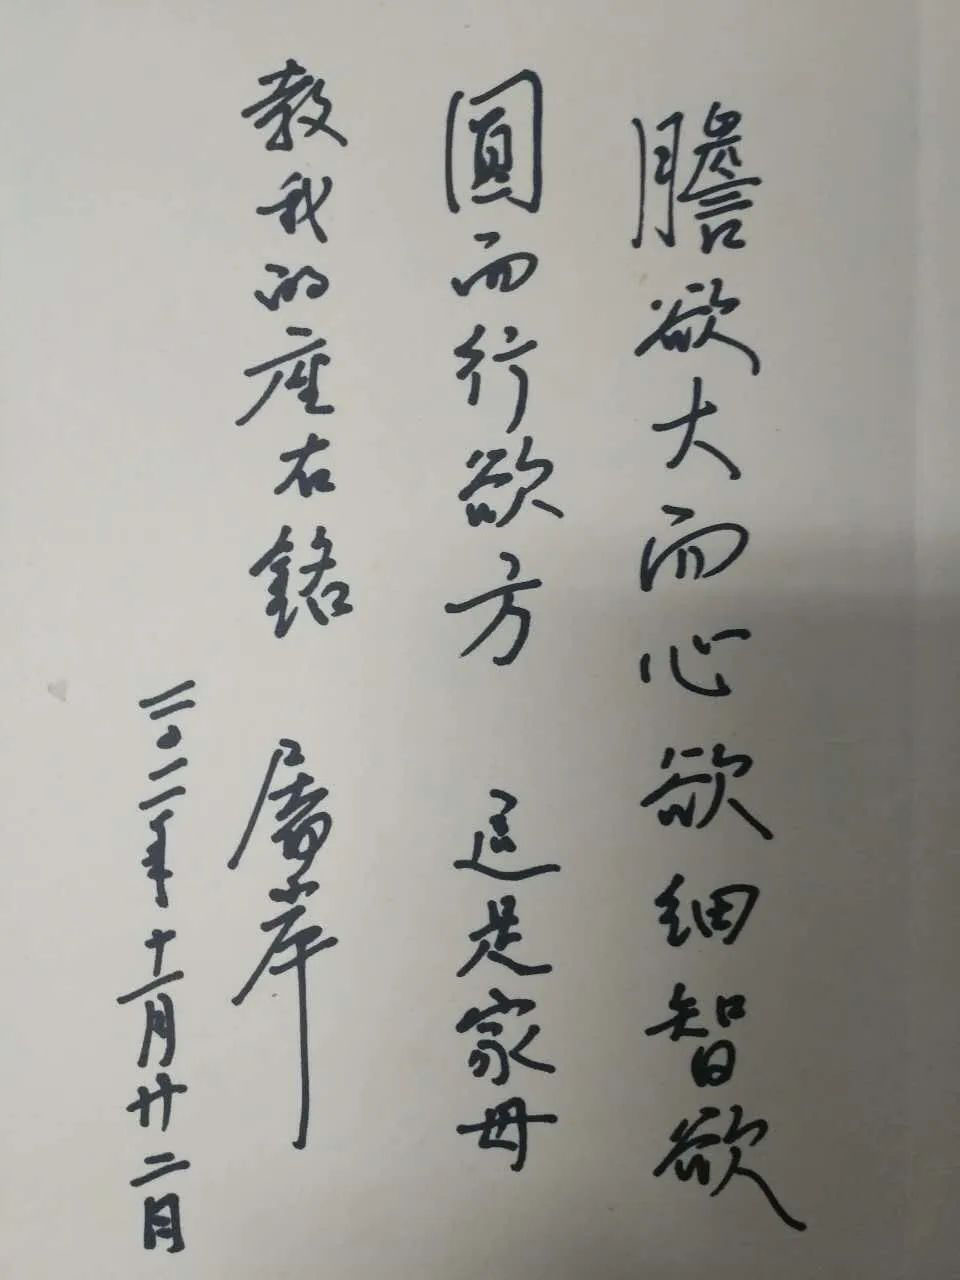 膽欲大而心欲细智欲
圓而行欲方 這是家母
教我的座右銘 屠岸
二〇一一年十一月廿二日